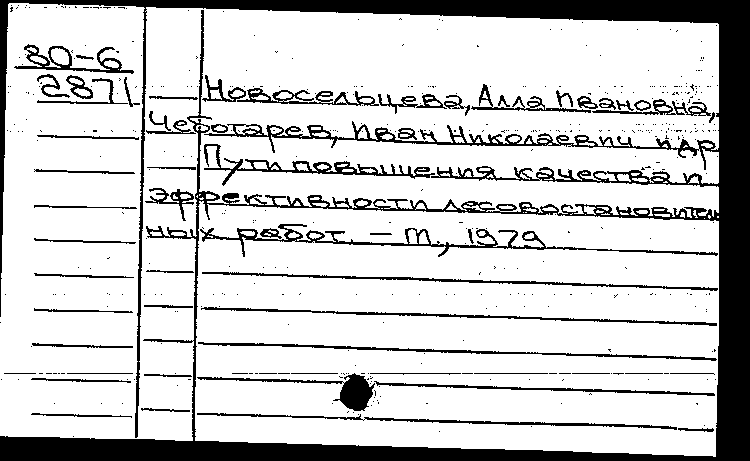 80-6
2871
Новосельцева, Алла Ивановна,
Чеботарев, Иван Николаевич и др
Пути повышения качества и
эффективности лесовостановитель
ных работ. — М., 1979